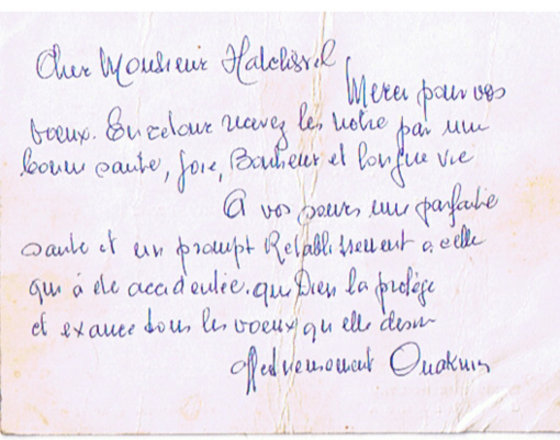 Cher Monsieur Hatchissel
Merci pour vos
voeux. En retour recevez les notre par une
bonne sante, joie, Bonheur et longue vie
A vos soeurs une parfaite
sante et un prompt Retablissement a celle
qui à été accidentée. que Dieu la protège
et exauce tous les voeux qu elle desire
Affectueusement Ouaknin